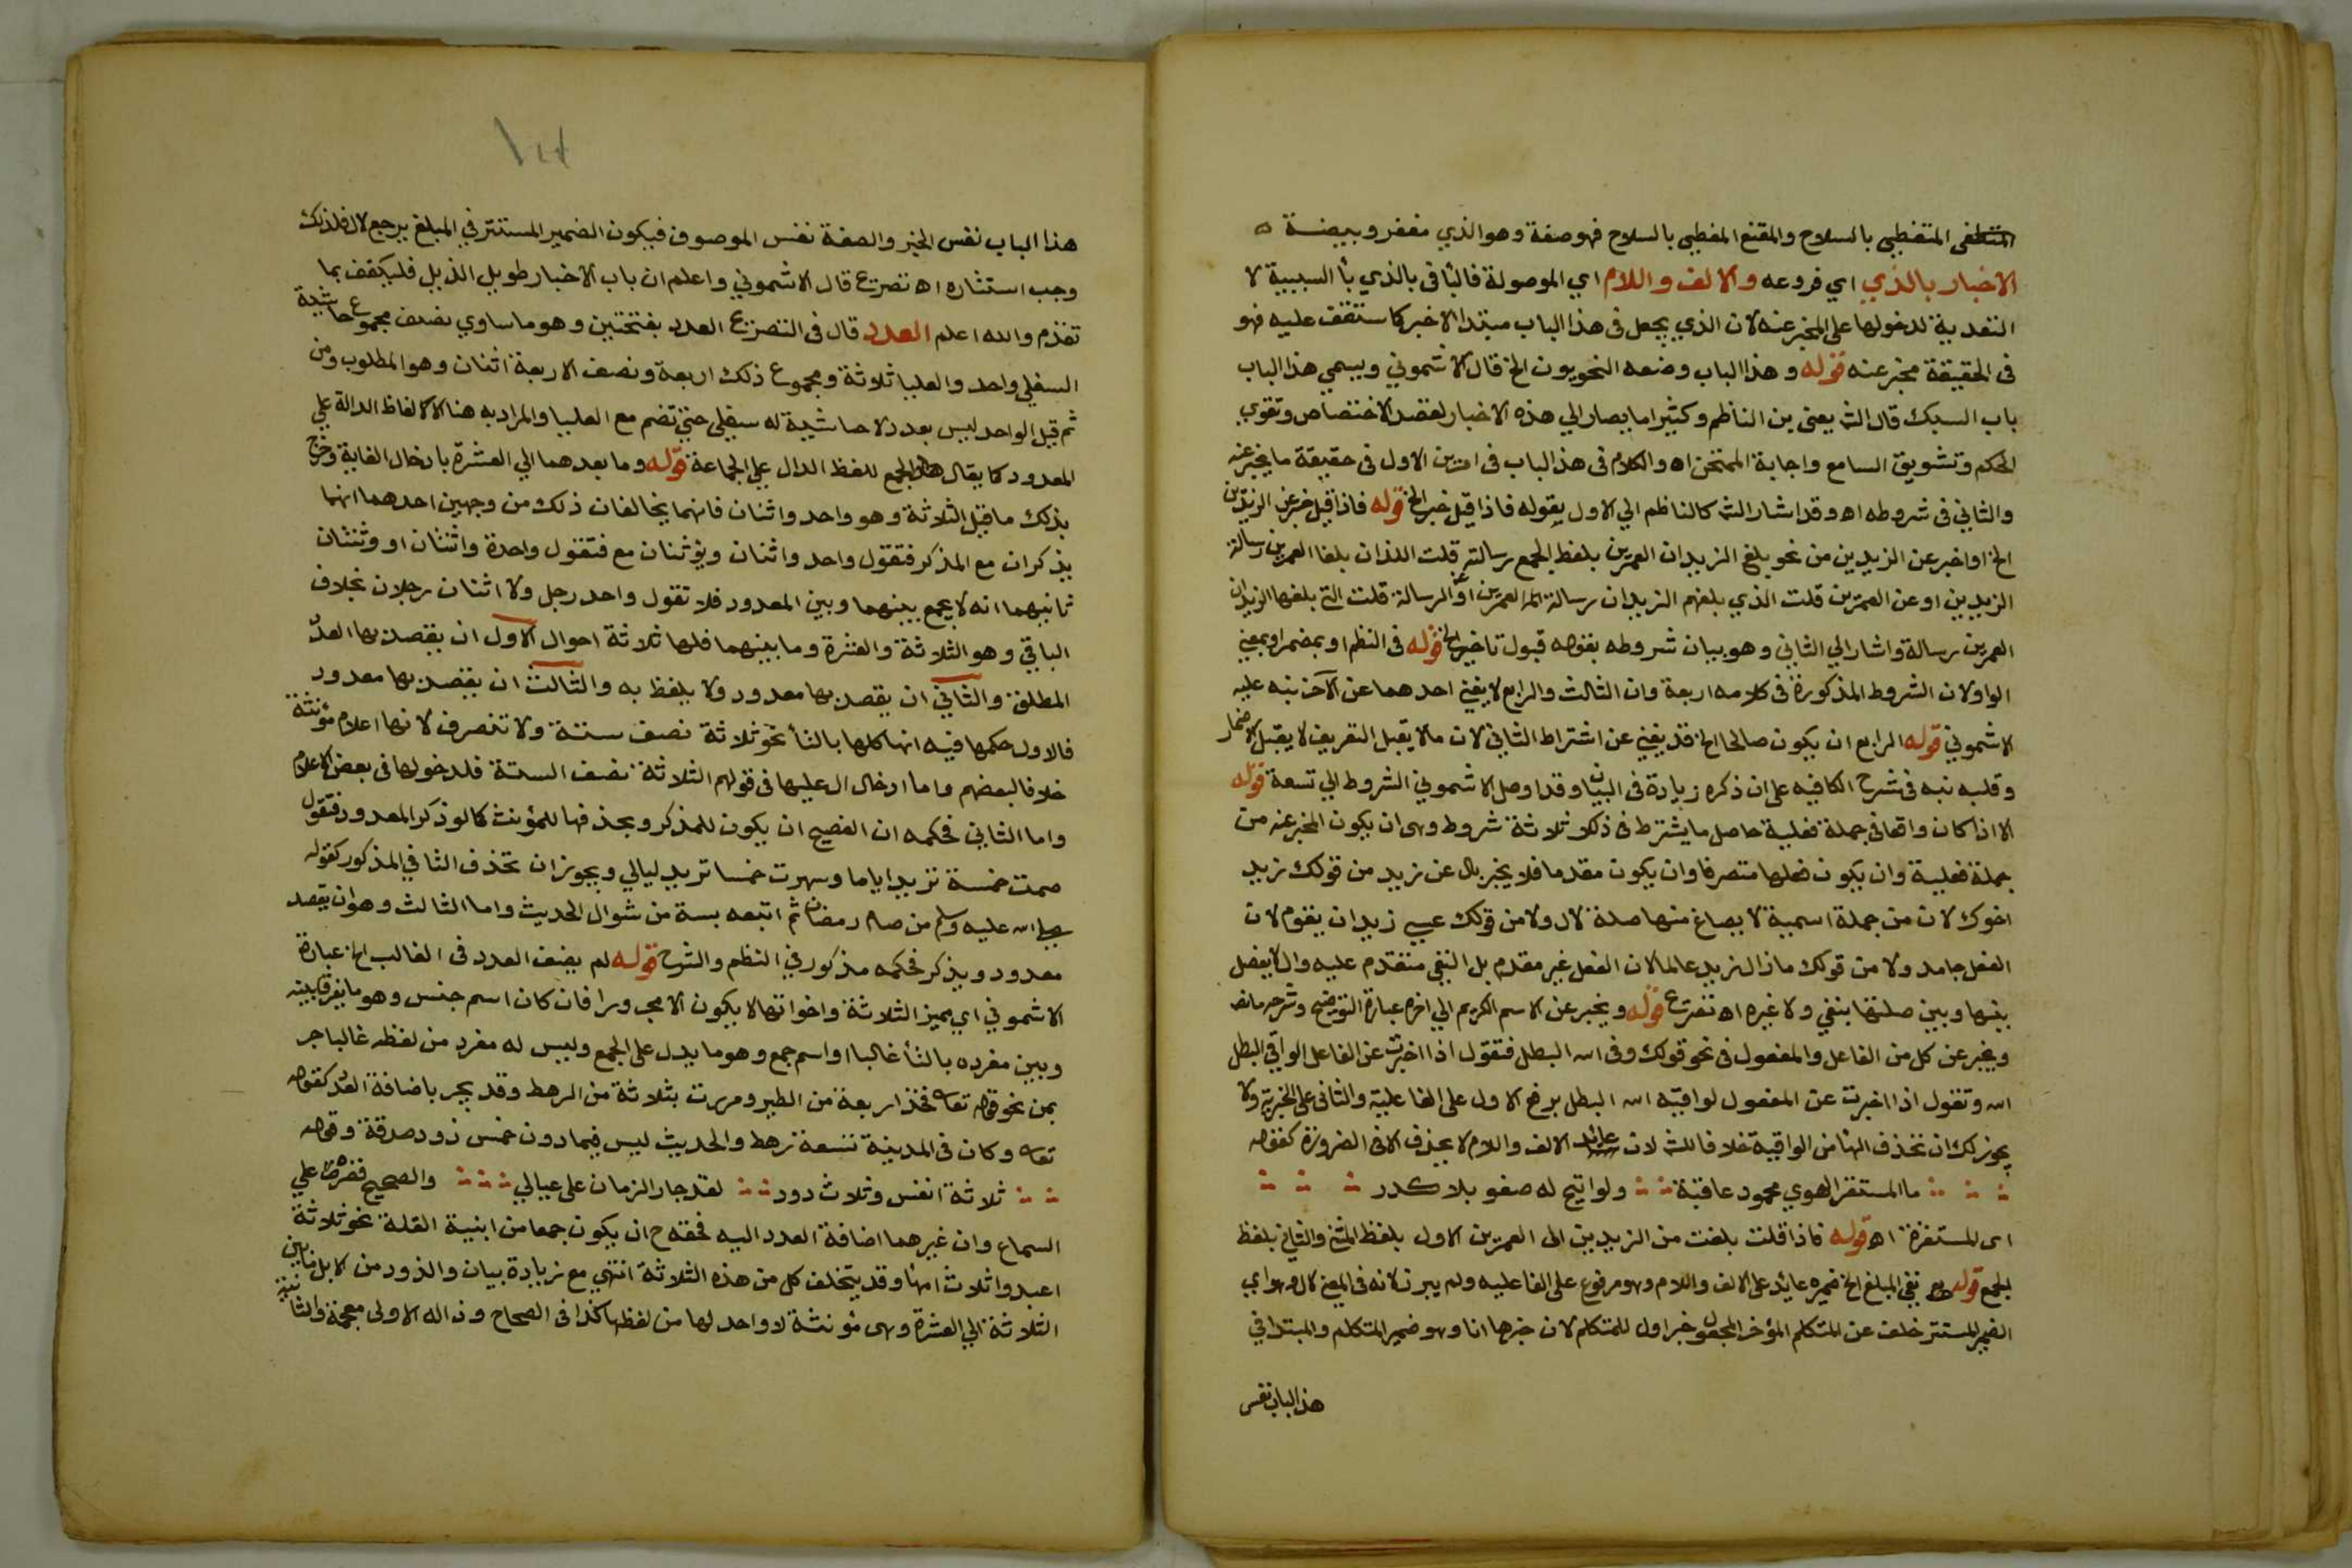 المتغطي بالسلاح والمقنع المغطي بالسلاح فهو صفة وهو الذي مغفر وبيضة
الاخبار بالذي اي فروعه والالف واللام اي الموصولة فالبا في بالذي با السببية لا
التعدية لدخولها على المخبر عنه لان الذي يجعل في هذا الباب مبتدا لاخبر كما ستقف عليه فهو
في الحقيقة مخبر عنه قوله وهذا الباب وضعه النحويون الخ قال الاشموني ويسمي هذا الباب
باب السبك قال الش يعني بن الناظم وكثيرا ما يصار الي هذه الاخبار لقصد الاختصاص وتقوي
الحكم وتشويق السامع واجابة الممتحن اه والكلام في هذا الباب في امرين الاول في حقيقة ما يخبر عنه
والثاني في شروطه اه وقد اشار الش كالناظم الي الاول بقوله فاذا قيل خبر الخ قوله فاذا قيل خبر عن الزيدين
الخ او اخبر عن الزيدين من نحو بلغ الزيدان العمرين بلفظ الجمع رسالة قلت اللذان بلغا العمرين رسالة
الزيدين او عن العمرين قلت الذي بلغهم الزيدان رسالة العمرين او الرسالة قلت التي بلغها الزيدان
العمرين رسالة واشار الي الثاني وهو بيان شروطه بقوله قبول تاخير الخ قوله في النظم او بمضمر او بمعني
الواو لان الشروط المذكورة في كلامه اربعة وان الثالث والرابع لا يغني احدهما عن الآخر نبه عليه
الاشموني قوله الرابع ان يكون صالحا الخ قد يغني عن اشتراط الثاني لان ما لا يقبل التعريف لا يقبل الاضمار
وقلبه نبه في شرح الكافيه على ان ذكره زيادة في البيان وقد اوصل الاشموني الشروط الي تسعة قوله
الا اذا كان واقعا في جملة فعلية حاصل ما يشترط في ذلك ثلاثة شروط وهي ان يكون المخبر عنه من
جملة فعلية وان يكون فعلها متصرفا وان يكون مقدما فلا يخبر بال عن زيد من قولك زيد
اخوك لان من جملة اسمية لا يصاغ منها صلة لال ولا من قولك عسي زيد ان يقوم لان
الفعل جامد ولا من قولك ما زال زيد عالما لان الفعل غير مقدم بل النفي متقدم عليه وال لا يفصل
بينها وبين صلتها بنفي ولا غيره اه تصريح قوله ويخبر عن الاسم الكريم الي اخره عبارة التوضيح وشرحه مانصه
ويخبر عن كل من الفاعل والمفعول في نحو قولك وقى الله البطل فتقول اذا اخبرت عن الفاعل الواقي البطل
الله وتقول اذا اخبرت عن المفعول الواقيه الله البطل برفع الاول على الفاعلية والثاني على الخبرية ولا
يجوز لك ان تحذف الها من الواقيه خلافا للش لان عائد الالف واللام لا يحذف الا في الضرورة كقوله
ما المستفز الهوي محمود عاقبة ولو اتيح له صفو بلا كدر
اى المستفزه اه قوله فاذا قلت بلغت من الزيدين الى العمرين الاول بلفظ المثنى والثاني بلفظ
الجمع قوله ففي المبلغ الخ ضميره عائد على الالف واللام وهو مرفوع على الفاعليه ولم يبرز لانه في المعنى لال وهو اي
الضمير المستتر خلف عن المتكلم المؤخر المجعول خبر اول للمتكلم لان خبرها انا وهو ضمير المتكلم والمبتدا في
هذا الباب نفس
هذا الباب نفس الخبر والصفة نفس الموصوف فيكون الضمير المستتر في المبلغ يرجع لال فلذلك
وجب استتاره اه تصريح قال الاشموني واعلم ان باب الاخبار طويل الذيل فليكتف بما
تقدم والله اعلم العدد قال في التصريح العدد بفتحتين وهو ما ساوي نصف مجموع حاشية
السفلي واحد والعليا ثلاثة ومجموع ذلك اربعة ونصف الاربعة اثنان وهو المطلوب ومن
ثم قيل الواحد ليس بعدد لا حاشية له سفلى حتي تضم مع العليا والمراد به هنا الالفاظ الدالة علي
المعدود كما يقال الجمع للفظ الدال علي الجماعة قوله وما بعدهما الي العشرة بادخال الغاية وخرج
بذلك ما قبل الثلاثة وهو واحد واثنان فانهما يخالفان ذلك من وجهين احدهما انهما
يذكران مع المذكر فتقول واحد واثنان ويؤنثان مع فتقول واحدة واثنتان او وثنتان
ثانيهما انه لا يجمع بينهما وبين المعدود فلا تقول واحد رجل ولا اثنان رجلان بخلاف
الباقي وهو الثلاثة والعشرة وما بينهما فلها ثلاثة احوال الاول ان يقصد بها العدد
المطلق والثاني ان يقصد بها معدود ولا يلفظ به والثالث ان يقصد بها معدود
فالاول حكمها فيه انها كلها بالتا نحو ثلاثة نصف ستة ولا تنصرف لانها اعلام مؤنثة
خلافا لبعضهم واما ادخال ال عليها في قولهم الثلاثة نصف الستة فلدخولها في بعض الاعلام
واما الثاني فحكمه ان الفصيح ان يكون للمذكر وبحذفها للمؤنث كما لو ذكر المعدود فتقول
صمت خمسة تريد اياما وسهرت خمسا تريد ليالي ويجوز ان تحذف التا في المذكور كقوله
صلى الله عليه وسلم من صام رمضان ثم اتبعه بستة من شوال الحديث واما الثالث وهو ان يقصد
معدود ويذكر فحكمه مذكور في النظم والشرح قوله لم يضف العدد في الغالب الخ عبارة
الاشموني اي مميز الثلاثة واخواتها لا يكون الا مجرورا فان كان اسم جنس وهو ما يفرق بينه
وبين مفرده بالتا غالبا او اسم جمع وهو ما يدل على الجمع وليس له مفرد من لفظه غالبا جر
بمن نحو قوله تعالى فخذ اربعة من الطير ومررت بثلاثة من الرهط وقد يجر باضافة العدد كقوله
تعالى وكان في المدينة تسعة رهط والحديث ليس فيما دون خمس ذود صدقة وقوله
ثلاثة انفس وثلاث ذود لقد جار الزمان على عيالي والصحيح قصره علي
السماع وان غيرهما اضافة العدد اليه فحقه ح ان يكون جمعا من ابنية القلة نحو ثلاثة
اعبد وثلاث امآ وقد يتخلف كل من هذه الثلاثة انتهي مع زيادة بيان والذود من الابل ما بين
الثلاثة الي العشرة وهى مؤنثة لا واحد لها من لفظها كذا في الصحاح وذاله الاولى معجمة والثانية